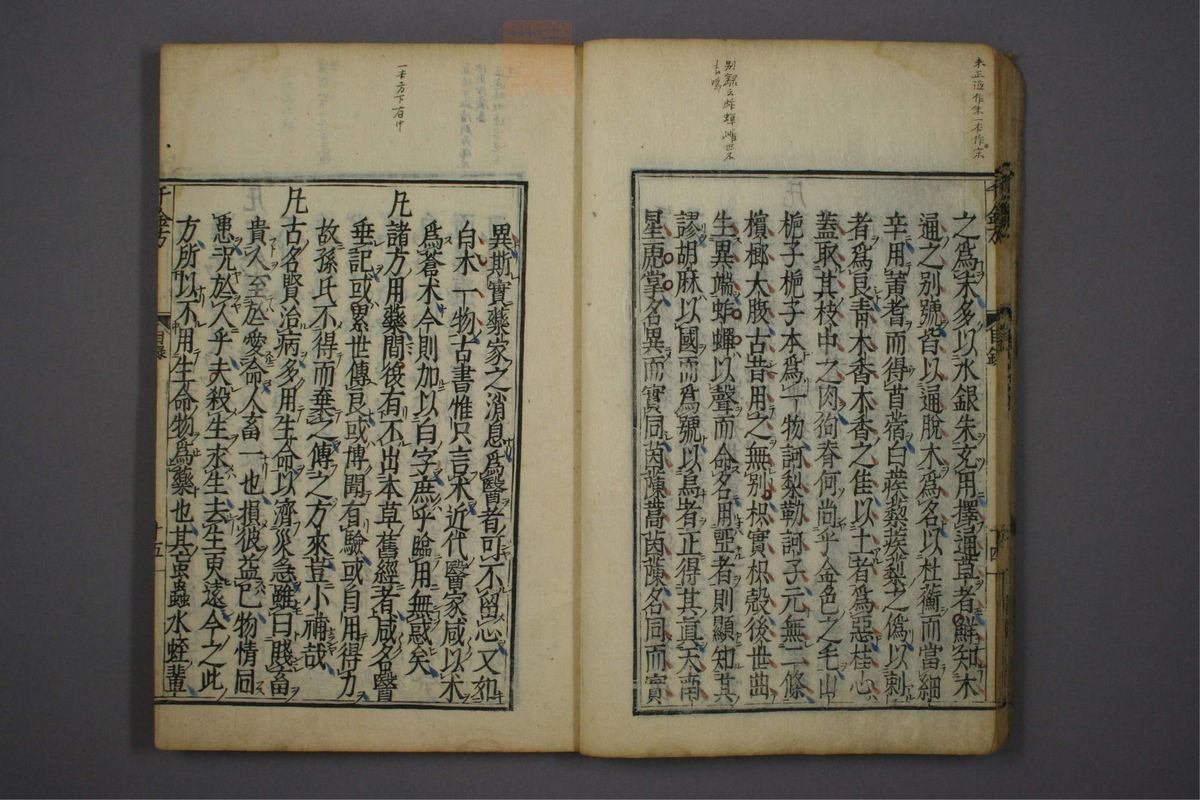 未正道作朱一本作宋
別錄云蚱蟬雌世不
之爲末多以水銀朱充用擇通草者鮮知木
通之別號皆以通脫木爲名以杜蘅而當細
辛用黃耆而得苜蓿白蒺蔾蒺蔾之僞以刺
者爲良青木香木香之佳以土者爲惡桂心
蓋取其枝中之肉狗脊何尚乎金色之毛山
梔子梔子本爲一物訶梨勒訶子元無二條
檳榔大腹古昔用之無別枳實枳殻後世曲
生異端蚱蟬以聲而命名用瘂者則顯知其
謬胡麻以國而爲號以烏者正得其眞天南
星虎掌名異而實同茵蔯蒿茵蔯名同而實
千金方
目錄
十四
一本方下有中
異斯實藥家之消息爲醫者可不留心又如
白朮一物古書惟只言朮近代醫家咸以朮
爲蒼朮今則加以白字庶乎臨用無惑矣
凡諸方用藥間復有不出本草舊經者咸名醫
垂記或累世傳良或博聞有驗或自用得力
故孫氏不得而棄之傳之方來豈小補哉
凡古名賢治病多用生命以濟災急雖曰賤畜
貴人至於愛命人畜一也損彼益己物情同
患況於人乎夫殺生求生去生更遠今之此
方所以不用生命物爲藥也其䖟蟲水蛭輩
千金方
目錄
十五